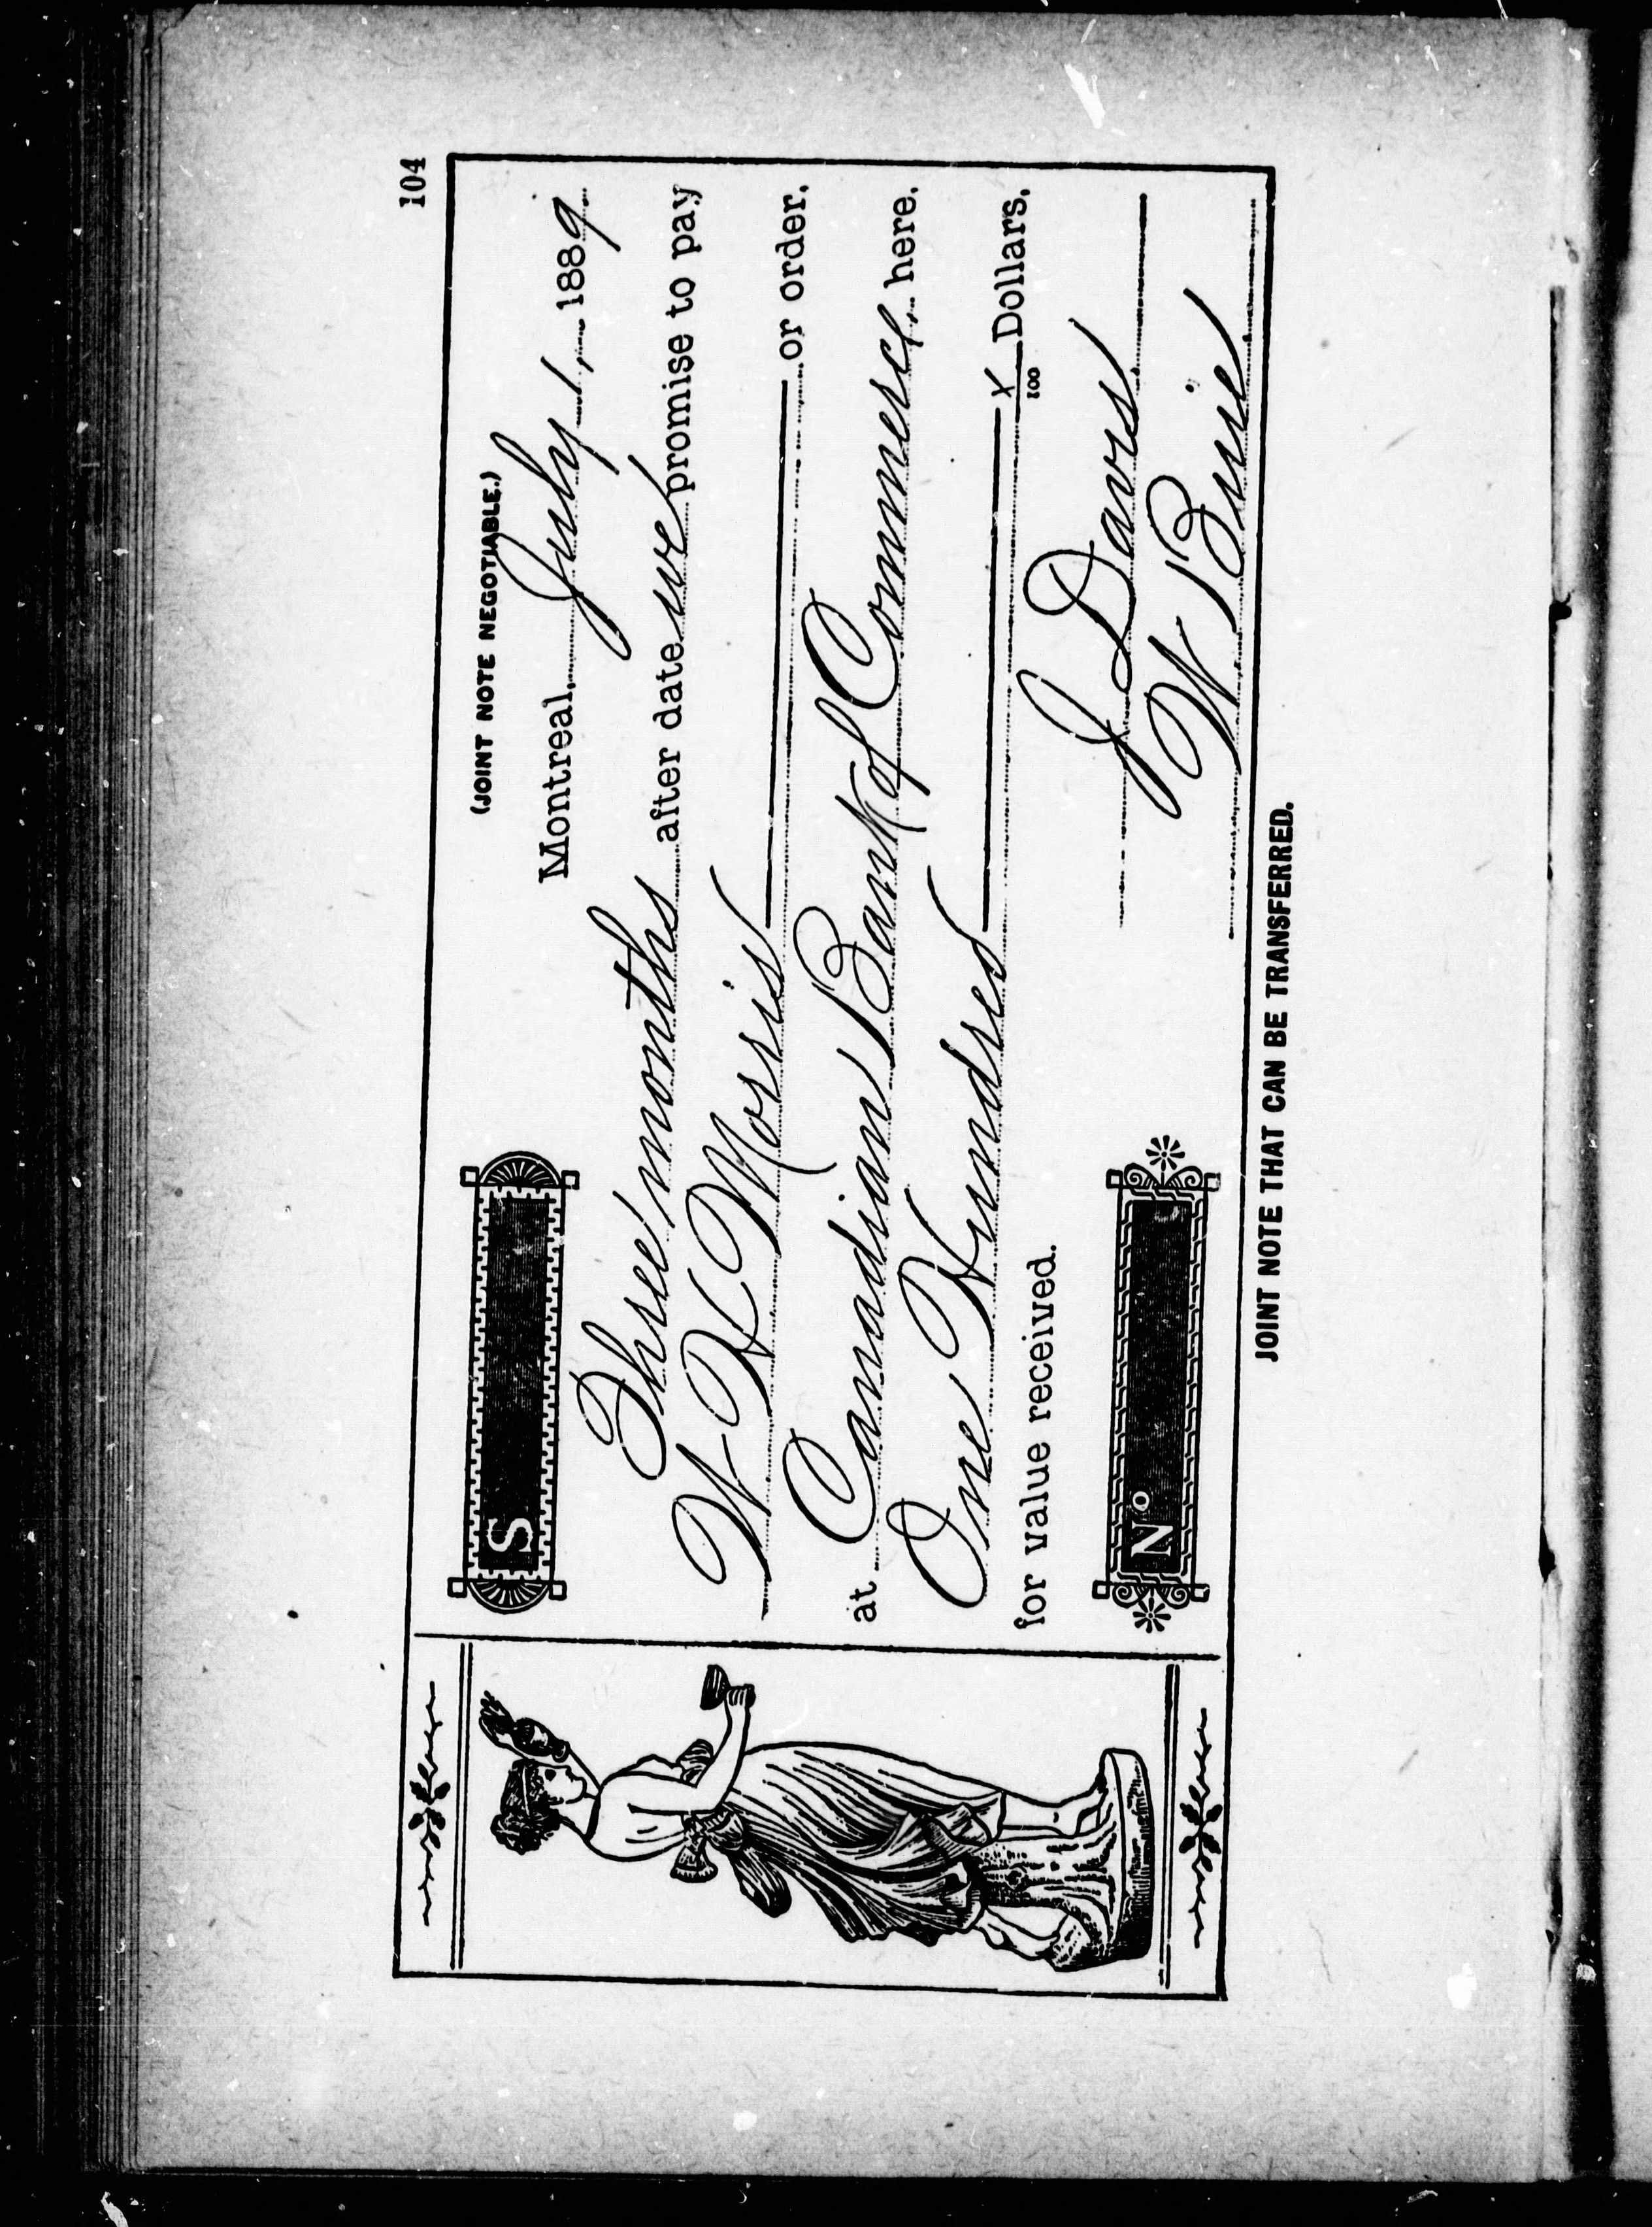 104
(JOINT NOTE NEGOTIABLE.)
$
Montreal, July 1, 1889.
Three months after date we promise to pay
W H Morris or order,
at Canadian Bank of Commerce, here.
One Hundred x/100 Dollars,
for value received.
J Davis
Nº
W Bruie
JOINT NOTE THAT CAN BE TRANSFERRED.